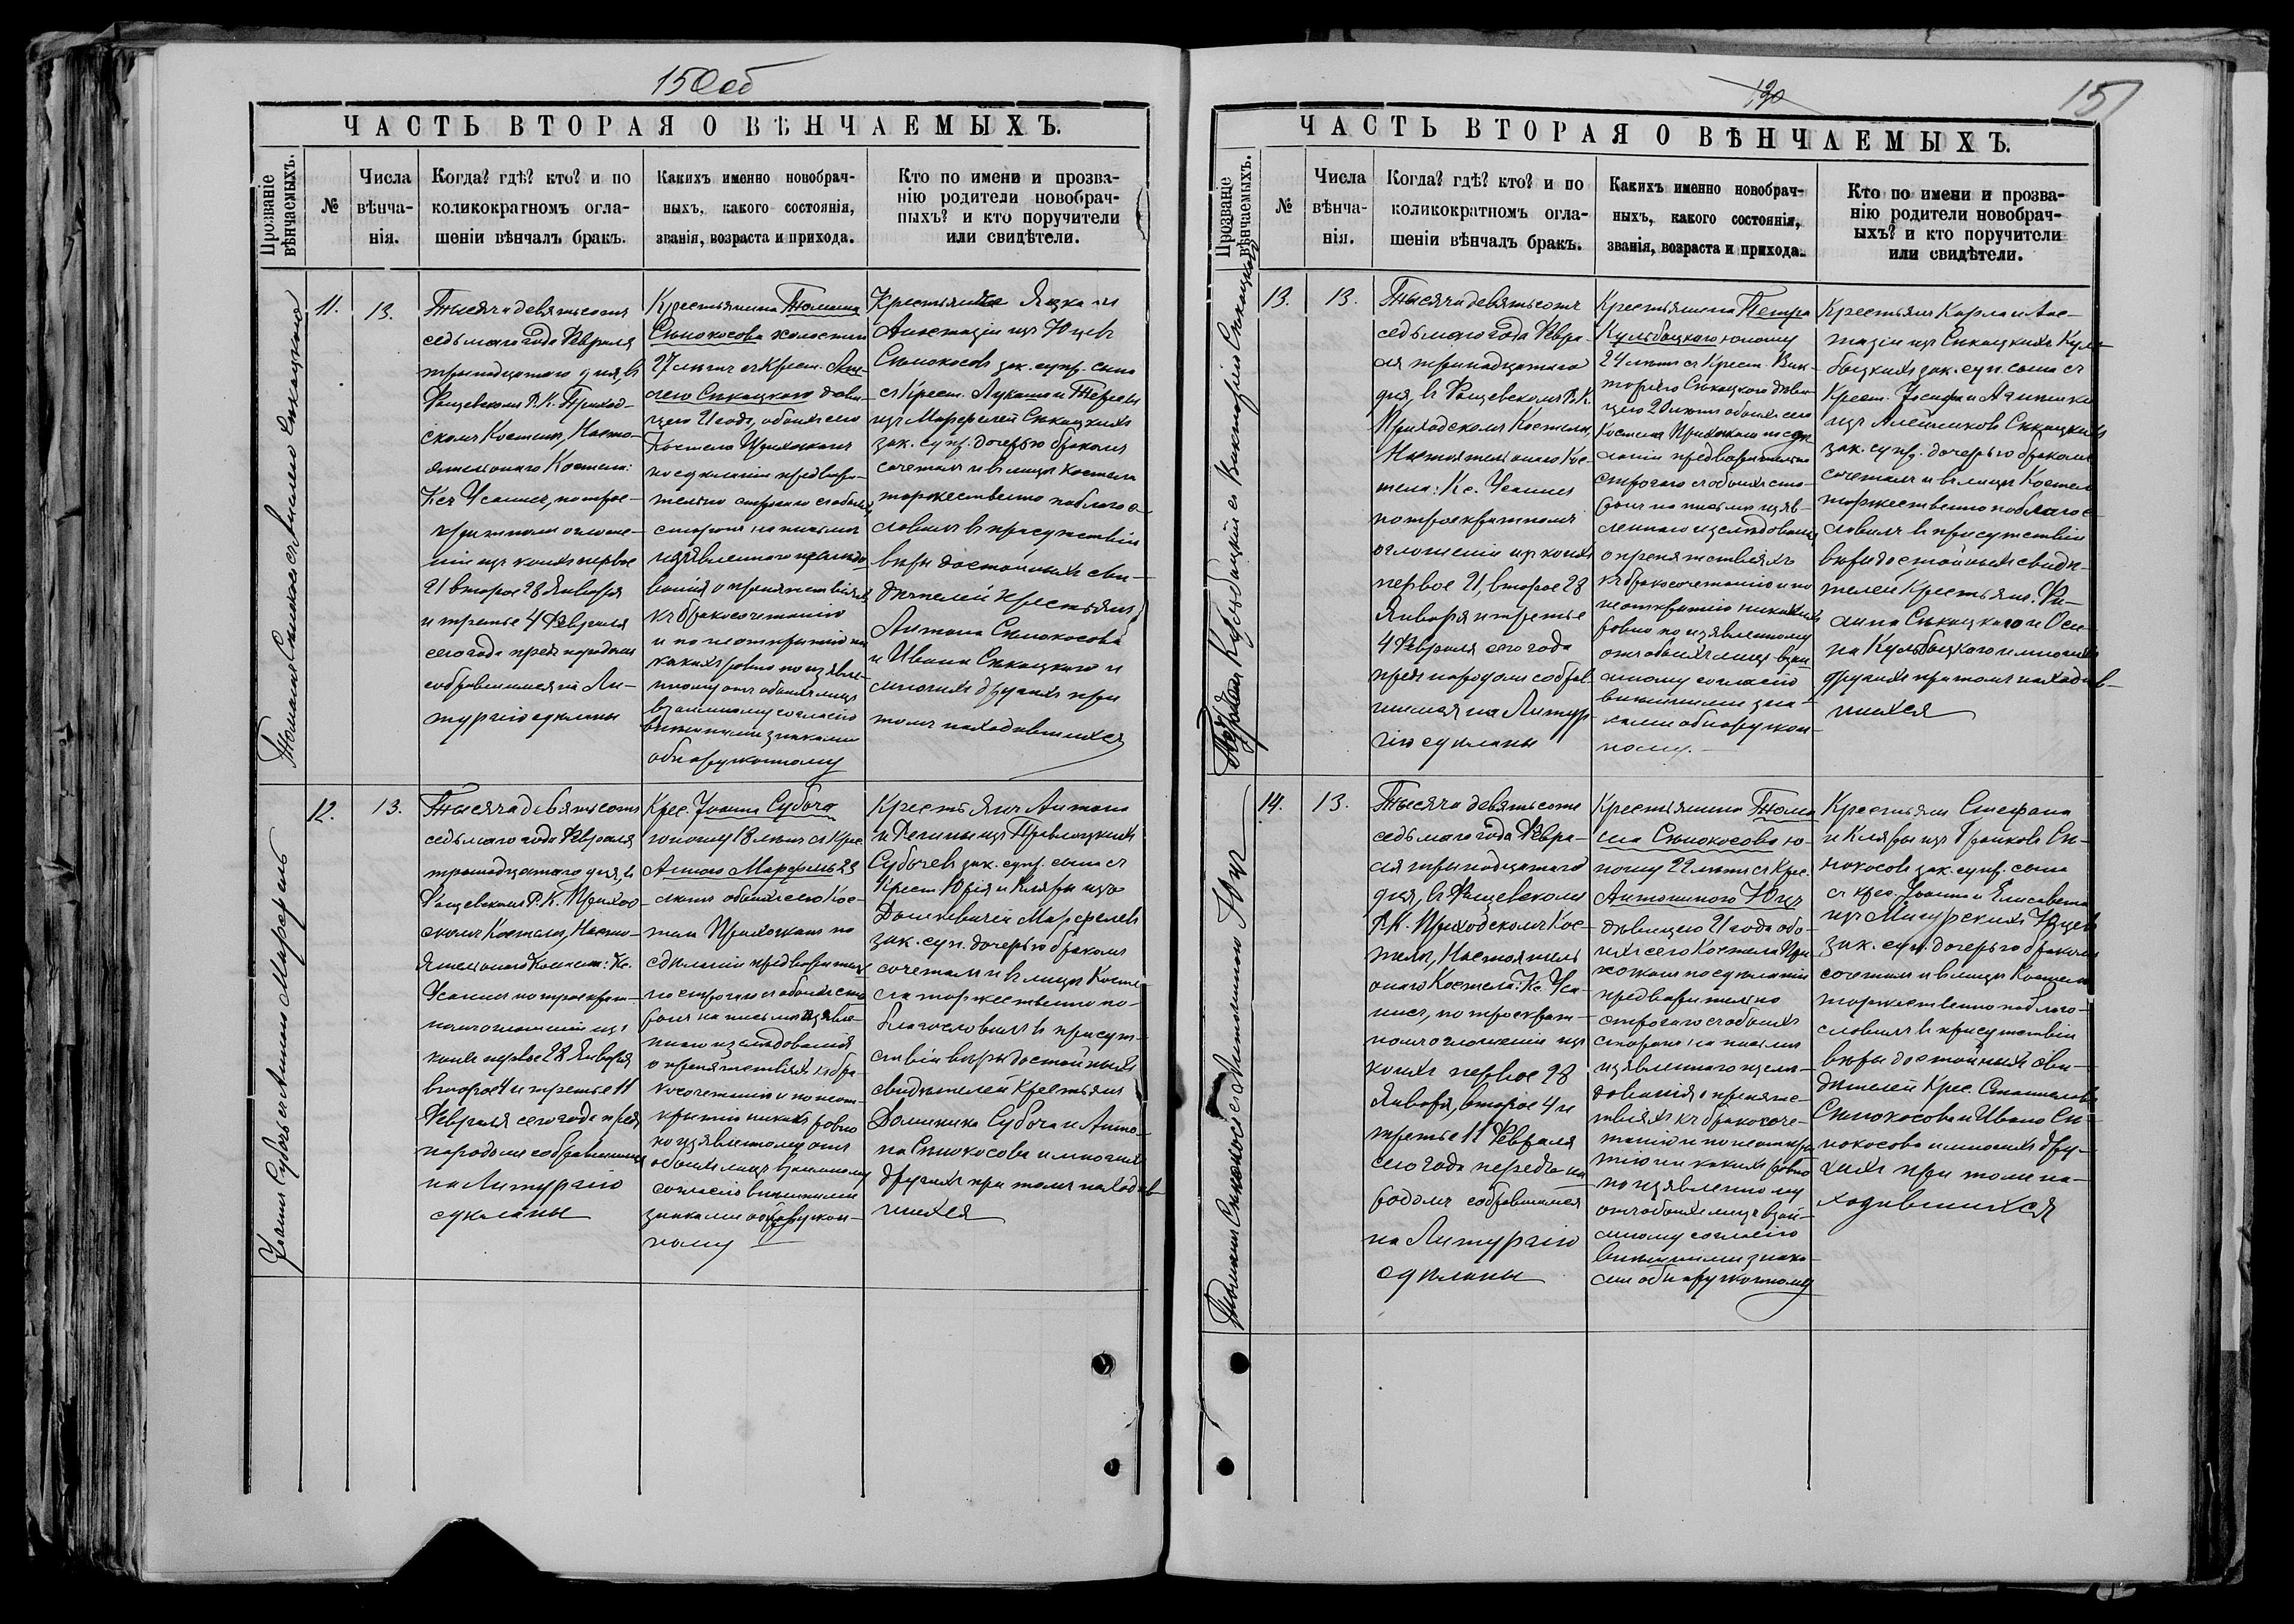 150об
ЧАСТЬ ВТОРАЯ О ВѢНЧАЕМЫХЪ.
Прозваніе вѣнчаемыхъ.
№
Числа вѣнча-
нія.
Когда? гдѣ? кто? и по
коликократномъ огла-
шеніи вѣнчалъ бракъ.
Какихъ именно новобрач-
ныхъ, какого состоянія,
званія, возраста и прихода.
Кто по имени и прозва-
нію родители новобрач-
ныхъ? и кто поручители
или свидѣтели.
11.
13.
Тысяча девятьсотъ
седьмаго года Февраля
тринадцатаго дня, въ
Р. К. Приход-
скомъ Костелѣ, Насто-
ятель онаго Костела:
по трое-
кратномъ оглаше-
ніи изъ коихъ первое
21 второе 28 Января
и третье 4 Февраля
сего года предъ народомъ
собравшимся на Ли-
тургію сдѣланы
Крестьянина Томаша
Сѣнокосова
27 лѣтъ съ Крест.
дѣви-
цею 21 года, обоихъ сего
Костела Прихожанъ
по сдѣланіи предвари-
тельно строгаго съ обоихъ
сторонъ на письмѣ
изъявленнаго изслѣдо-
ванія о препятствіяхъ
къ бракосочетанію
и по неоткрытію ни
какихъ ровно по изъявле-
нному отъ обоихъ лицъ
взаимному согласію
внѣшними знаками
обнаруженному
Крестьянъ
Анастазіи изъ Юцевъ
Сѣнокосов зак. супр. сына
съ Крест.
изъ Марфелей
зак. супр. дочерью бракомъ
сочеталъ и въ лицѣ Костела
торжественно поблаго-
словилъ въ присутствіи
вѣры достойныхъ сви-
дѣтелей Крестьянъ
Антона Сѣнокосова
и Ивана и
многихъ другихъ при
томъ находившихся
Іоаннъ Субочь съ Анною Марфель
12.
13.
Тысяча девятьсотъ
седьмаго года Февраля
тринадцатаго дня, въ
Р. К. Приход-
скомъ Костелѣ, Насто-
ятель онаго Костела: Кс.
по троекрат-
номъ оглашеніи изъ
коихъ первое 28 Января
второе 4 и третье 11
Февраля сего года предъ
народомъ собравшимся
на Литургію
сдѣланы
Крес. Іоанна Субоча
юношу 18 лѣтъ съ Крес.
Анною Марфель 23
лѣтъ обоихъ сего Кос-
тела Прихожанъ по
сдѣланіи предварител
но строгаго съ обоихъ сто
ронъ на письмѣ изъявле-
ннаго изслѣдованія
о препятствіяхъ къ бра-
косочетанію и по неот-
крытію никакихъ ровно
по изъявленному отъ
обоихъ лицъ взаимному
согласію внѣшними
знаками обнаружен-
ному
Крестьянъ Антона
и
Субочевъ зак. супр. сына съ
Крест. Юрія и Клары изъ
Марфелевъ
зак. суп. дочерью бракомъ
сочеталъ и въ лицѣ Косте
ла торжественно по-
благословилъ въ присут-
ствіи вѣры достойныхъ
свидѣтелей Крестьянъ
Доминика Субоча и Анто-
на Сѣнокосова и многихъ
другихъ при томъ находив-
шихся
151
ЧАСТЬ ВТОРАЯ О ВѢНЧАЕМЫХЪ.
Прозваніе вѣнчаемыхъ.
№
Числа вѣнча-
нія.
Когда? гдѣ? кто? и по
коликократномъ огла-
шеніи вѣнчалъ бракъ.
Какихъ именно новобрач-
ныхъ, какого состоянія,
званія, возраста и прихода.
Кто по имени и прозва-
нію родители новобрач-
ыхъ? и кто поручители
или свидѣтели.
13.
13.
Тысяча девятьсотъ
седьмаго года Февра-
ля тринадцатаго
дня, въ Р. К.
Приходскомъ Костелѣ,
Настоятель онаго Кос-
тела: Кс.
по троекратномъ
оглашеніи изъ коихъ
первое 21, второе 28
Января и третье
4 Февраля сего года
предъ народомъ собрав-
шимся на Литур-
гію сдѣланы
Крестьянина Петра
Кульбацкаго юношу
24 лѣтъ съ Крест. Вик-
торіею дѣви-
цею 20 лѣтъ обоихъ сего
Костела Прихожанъ по сдѣ-
ланіи предварительно
строгаго съ обоихъ сто-
ронъ на письмѣ изъяв-
леннаго изслѣдованія
о препятствіяхъ
къ бракосочетанію и по
неоткрытію никакихъ
ровно по изъявленному
отъ обоихъ лицъ взаи-
мному согласію
внѣшними зна-
ками обнаружен-
ному.
Крестьянъ Карла и Анс-
тазіи изъ Куль-
бацкихъ зак. суп. сына съ
Крест. Іосифа и
изъ Алейниковъ
зак. супр. дочерью бракомъ
сочеталъ и въ лицѣ Костела
торжественно поблагос-
ловилъ въ присутствіи
вѣры достойныхъ свидѣ-
телей Крестьянъ
и Оси-
па Кульбацкаго и многихъ
другихъ при томъ находив-
шихся
14.
13.
Тысяча девятьсотъ
седьмаго года Февра-
ля тринадцатаго
дня, въ
Р. К. Приходскомъ Кос-
телѣ, Настоятель
онаго Костела: Кс.
по троекрат-
номъ оглашеніи изъ
коихъ первое 28
Января, второе 4 и
третье 11 Февраля
сего года передъ на-
родомъ собравшимся
на Литургію
сдѣланы
Крестьянина Тома
ша Сѣнокосова ю-
ношу 22 лѣтъ съ Крес.
Антониною Юцъ
дѣвицею 21 года обо-
ихъ сего Костела При-
хожанъ по сдѣланіи
предварительно
строгаго съ обоихъ
сторонъ на письмѣ
изъявленнаго изслѣ-
дованія о препятс-
твіяхъ къ бракосоче-
танію и по неоткры
тію никакихъ ровно
по изъявленному
отъ обоихъ лицъ взаи-
мному согласію
внѣшними знака-
ми обнаруженному
Крестьянъ Стефана
и Клары изъ Сѣ-
нокосов зак. супр. сына
съ Крес. Іоанна и Елисаветы
изъ Мигурскихъ Юцевъ
зак. суп. дочерью бракомъ
сочеталъ и въ лицѣ Костела
торжественно поблаго-
словилъ въ присутствіи
вѣры достойныхъ сви-
дѣтелей Крес. Станислава
Сѣнокосова и Ивана Сѣ-
нокосова и многихъ дру-
гихъ при томъ на-
ходившихся